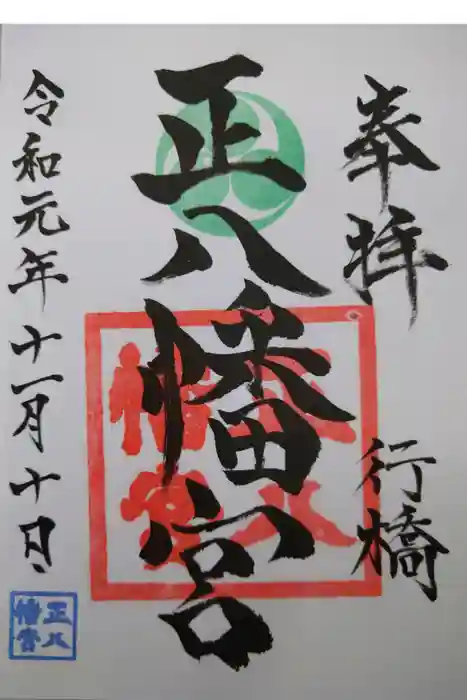 奉拝 行橋
正八幡宮
令和元年十一月十日
正八
幡宮
正八
幡宮